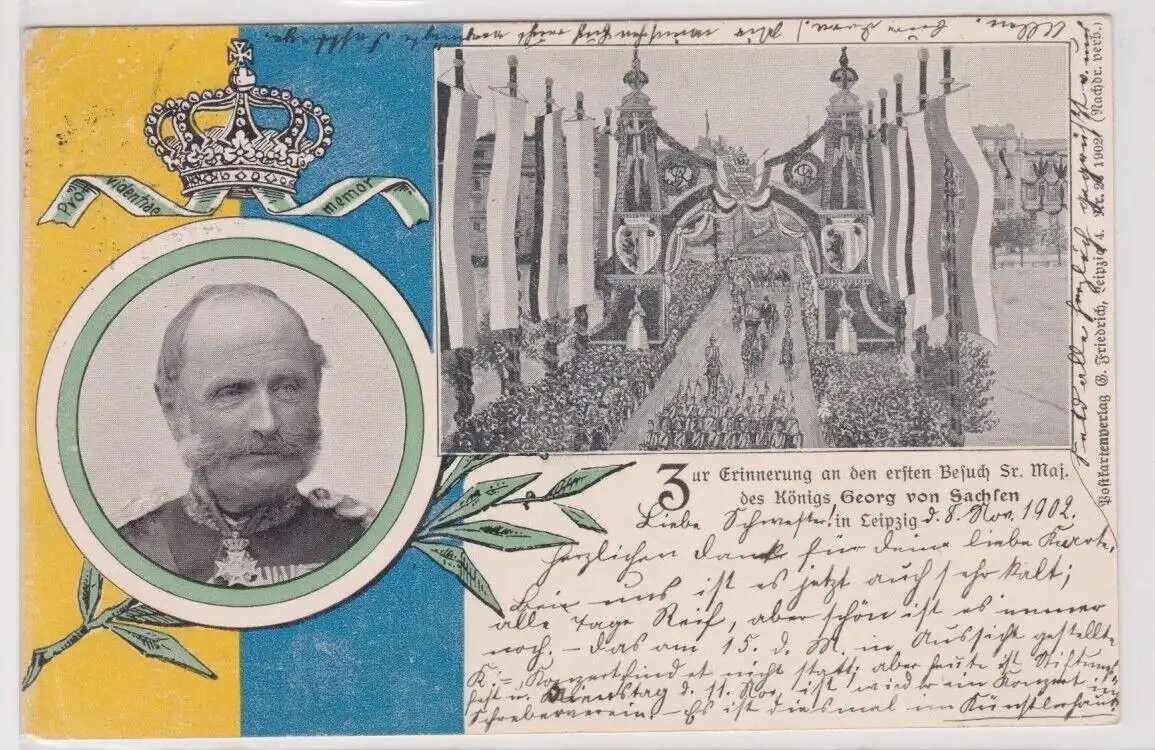 Providentiae memor
Zur Erinnerung an den ersten Besuch Sr. Maj.
des Königs Georg von Sachsen
in Leipzig d. 8. Nov. 1902.
Liebe Schwester!
Herzlichen Dank für deine liebe Karte,
Bei uns ist es jetzt auch sehr kalt;
alle Tage Reif, aber schön ist es immer
noch. – Das am 15. d. M. in Aussicht gestellte
K. = Konzert findet nicht statt; aber heute ist Stiftungs-
fest u. Dienstag d. 11. Nov. ist wieder ein Konzert im
Schreberverein. – Es ist diesmal im Künstlerhaus
Postkartenverlag G. Friedrich, Leipzig 4. Nr. 1902 (Nachdr. verb.)
Seid alle herzlich gegrüßt v. uns
Allen.